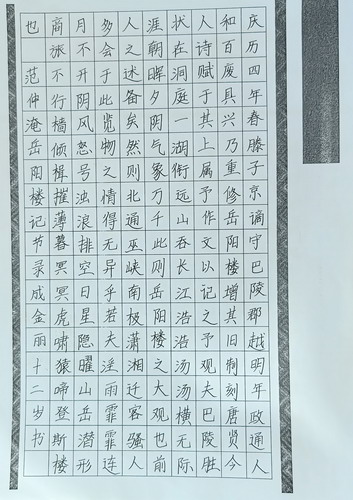 庆历四年春滕子京谪守巴陵郡越明年政通人
和百废具兴乃重修岳阳楼增其旧制刻唐贤今
人诗赋于其上属予作文以记之予观夫巴陵胜
状在洞庭一湖衔远山吞长江浩浩汤汤横无际
涯朝晖夕阴气象万千此则岳阳楼之大观也前
人之述备矣然则北通巫峡南极潇湘迁客骚人
多会于此览物之情得无异乎若夫淫雨霏霏连
月不开阴风怒号浊浪排空日星隐曜山岳潜形
商旅不行樯倾楫摧薄暮冥冥虎啸猿啼登斯楼
也 范仲淹岳阳楼记节录成金丽十二岁书